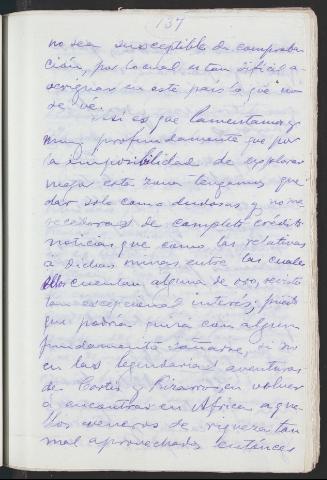 137
no sea susceptible de comproba-
ción, por lo cual es tan dificil a-
veriguar en este país lo que no
se ve.
Asi es que lamentamos
muy profundamente que por
la imposibilidad de explorar
mejor esta zona tengamos que
dar solo como dudosas y no me-
recedoras de completo crédito
noticias que como las relativas
á dichas minas entre las cuales
ellos cuentan alguna de oro, revisten
tan excepcional interés; puesto
que podria quiza con algun
fundamento soñarse, si no
en las legendarias aventuras
de Cortés y Pizarro, en volver
á encontrar en Africa aque-
llos veneros de riqueza tan
mal aprovechados entónces